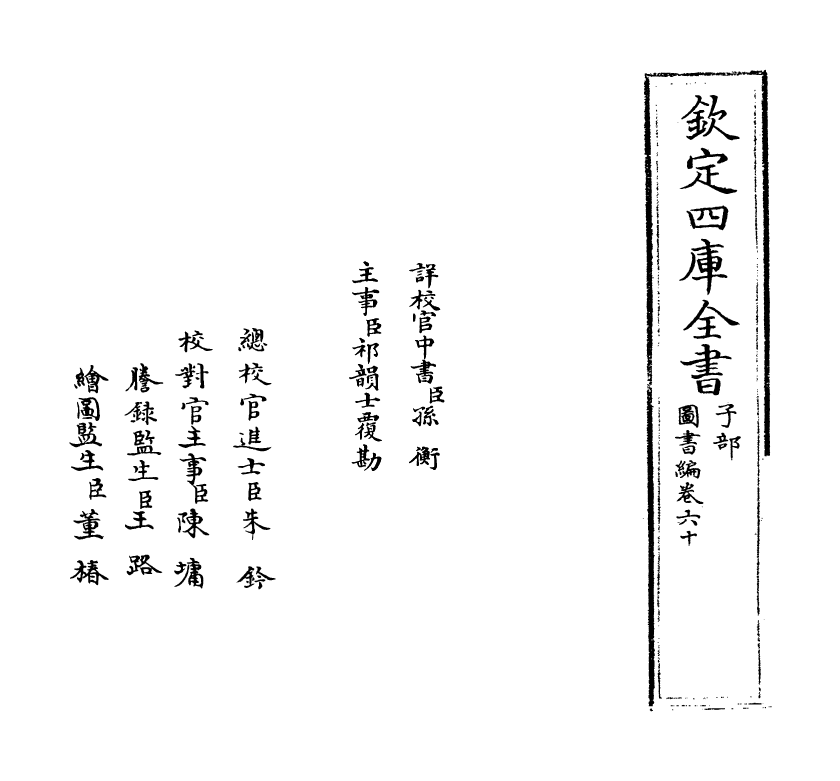 欽定四庫全書
子部
圖書編卷六十
詳校官中書臣孫衡
主事臣祁韻士覆勘
總校官進士臣朱鈐
校對官主事臣陳墉
謄録監生臣王路
繪圖監生臣董椿